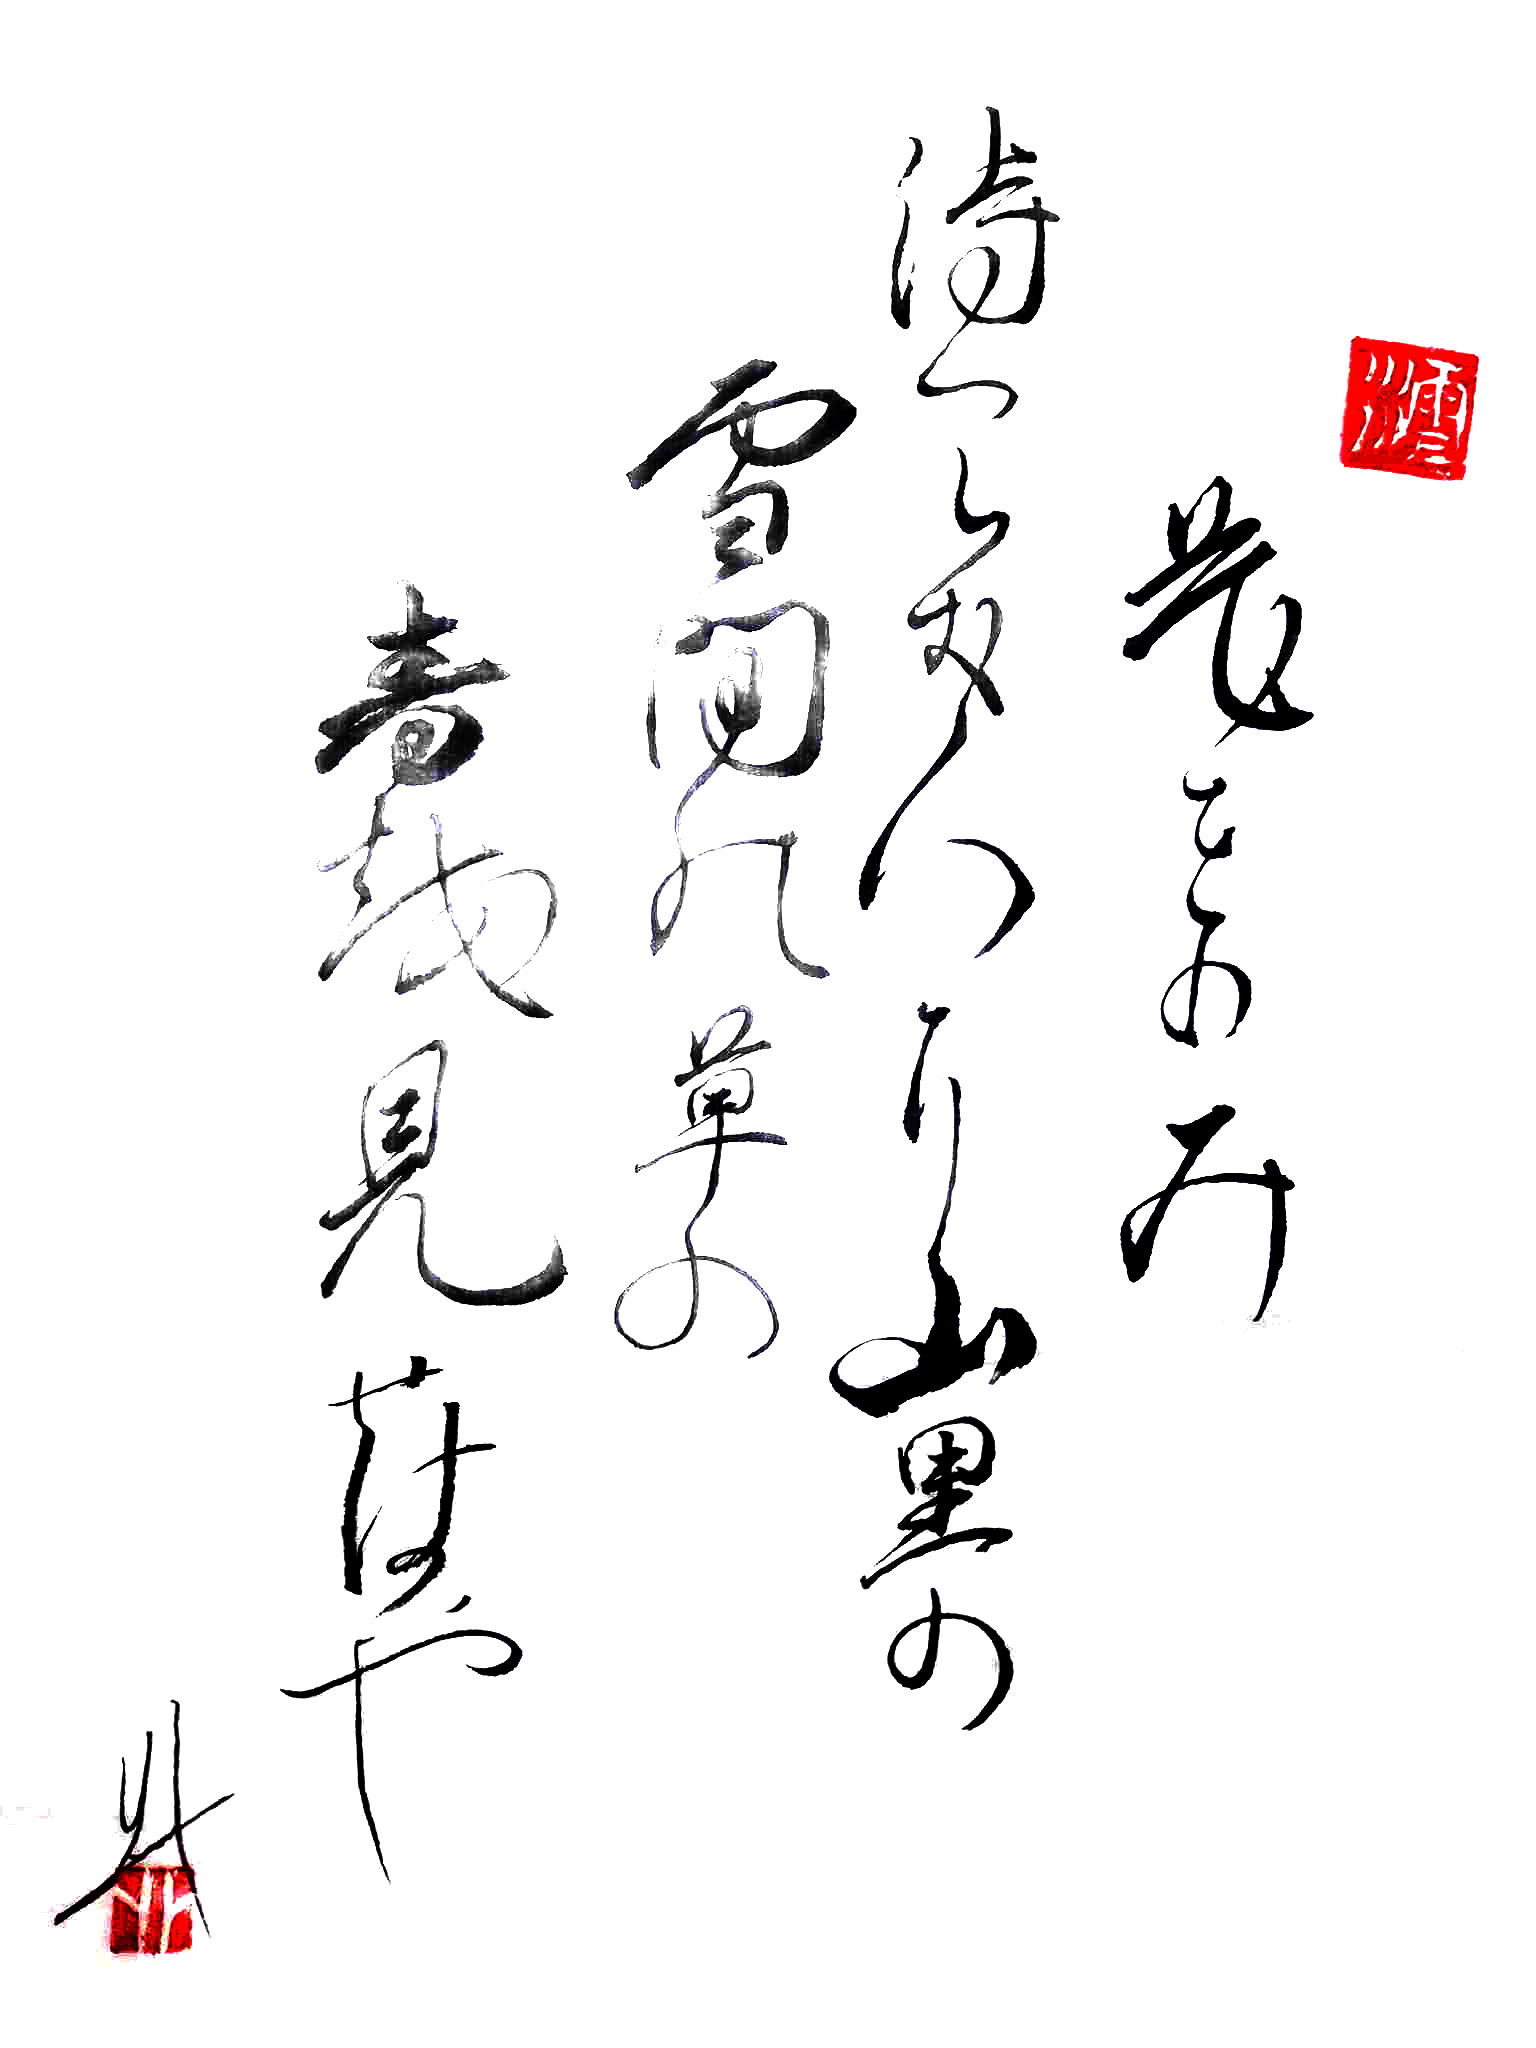 花をのみ
待つらむ人に山里の
雪間の草の
春を見せばや